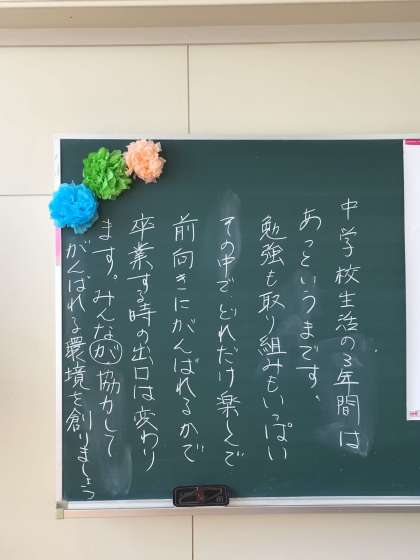 中学校生活の3年間は
あっというまです、
勉強も取り組みもいっぱい
その中で、どれだけ楽しんで
前向きにがんばれるかで
卒業する時の出口は変わり
ます。みんなが協力して
がんばれる環境を創りましょう